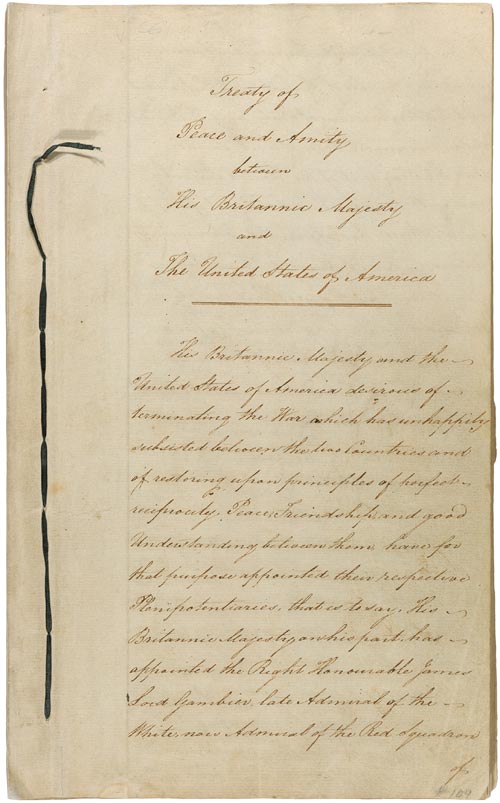 Treaty of
Peace and Amity
between
His Britannic Majesty
and
The United States of America
His Britannic Majesty and the
United States of America desirous of
terminating the War which has unhappily
subsisted between the two Countries and
of restoring upon principles of perfect
reciprocity, Peace, Friendship, and good
Understanding between them, have for
that purpose appointed their respective
Plenipotentiaries, that is to say, His
Britannic Majesty on his part has
appointed the Right Honourable James
Lord Gambier, late Admiral of the
White now Admiral of the Red Squadron
of
# 109